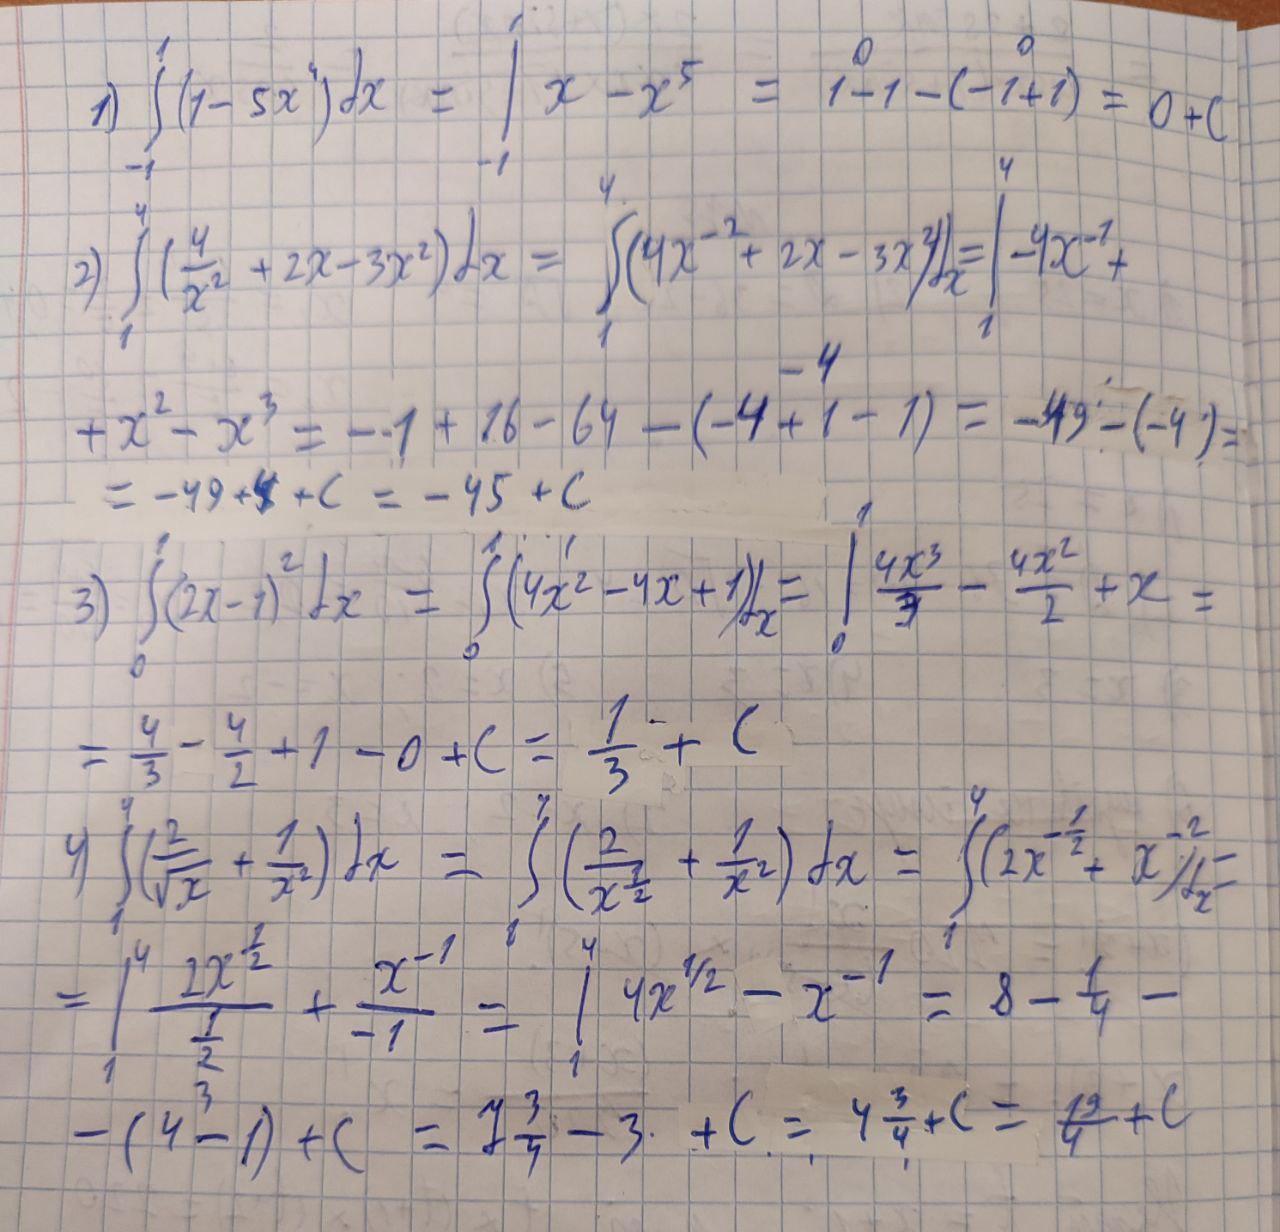 1) ∫₋₁¹ (1 - 5x⁴) dx = |₋₁¹ x - x⁵ = 1-1 (0) - (-1+1) (0) = 0 + C
2) ∫₁⁴ (4/x² + 2x - 3x²) dx = ∫₁⁴ (4x⁻² + 2x - 3x²) dx = |₁⁴ -4x⁻¹ +
+ x² - x³ = -1 + 16 - 64 - (-4 + 1 - 1) (-4) = -49 - (-4) =
= -49 + 4 + C = -45 + C
3) ∫₀¹ (2x - 1)² dx = ∫₀¹ (4x² - 4x + 1) dx = |₀¹ 4x³/3 - 4x²/2 + x =
= 4/3 - 4/2 + 1 - 0 + C = 1/3 + C
4) ∫₁⁴ (2/√x + 1/x²) dx = ∫₁⁴ (2/x^(1/2) + 1/x²) dx = ∫₁⁴ (2x^(-1/2) + x⁻²) dx =
= |₁⁴ 2x^(1/2)/(1/2) + x⁻¹/-1 = |₁⁴ 4x^(1/2) - x⁻¹ = 8 - 1/4 -
- (4 - 1) (3) + C = 7 3/4 - 3 + C = 4 3/4 + C = 19/4 + C